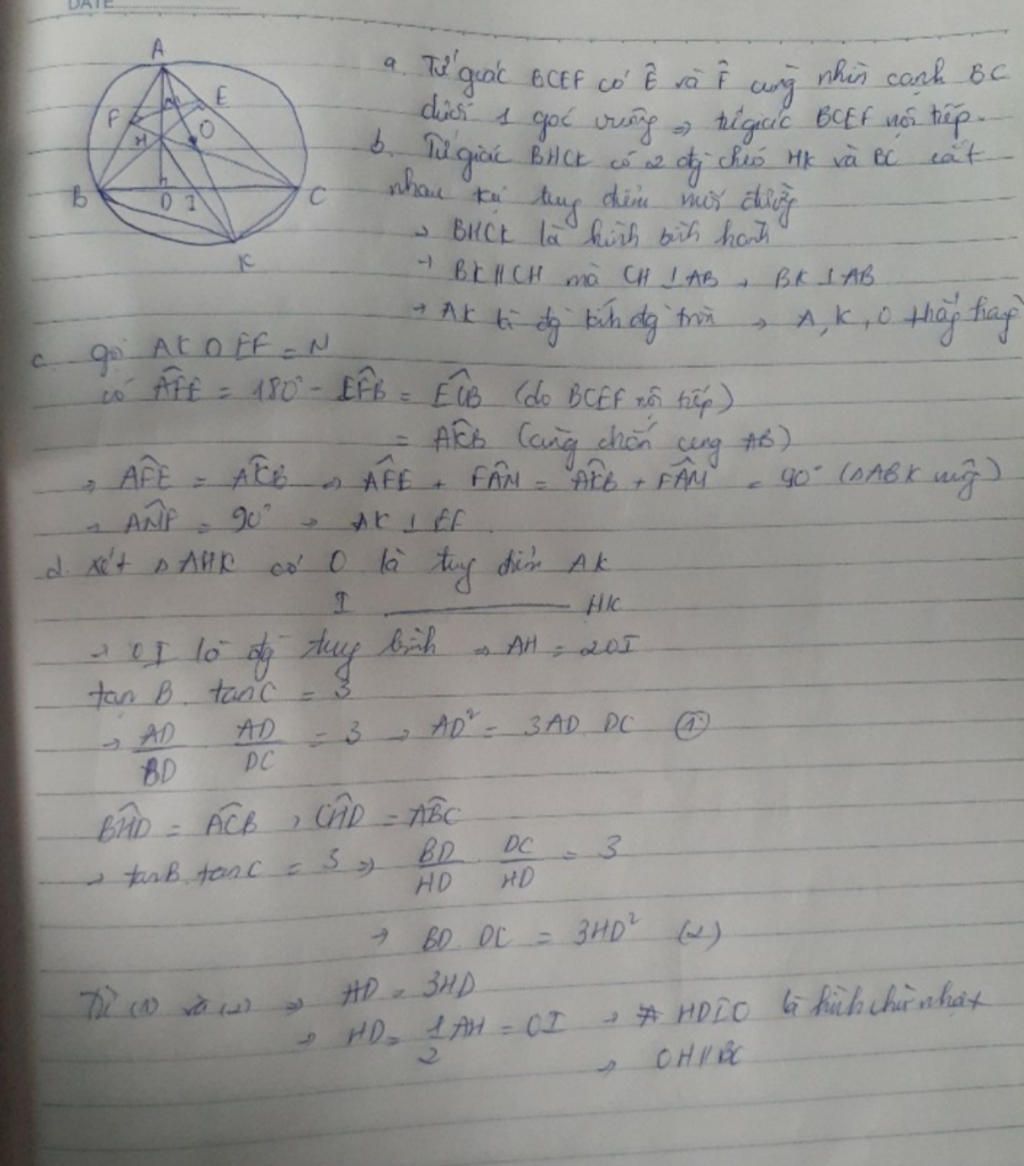 DATE
A
F
E
H
O
B
D I
C
K
a. Tứ giác BCEF có Ê và F̂ cùng nhìn cạnh BC
dưới 1 góc vuông ⇒ tứ giác BCEF nội tiếp.
b. Tứ giác BHCK có 2 đg chéo HK và BC cắt
nhau tại tung điểm mỗi đường
→ BHCK là hình bình hành
→ BK // CH mà CH ⊥ AB → BK ⊥ AB
→ AK là đg kính đg tròn → A, K, O thẳng hàng
c. gọi AK ∩ EF = N
có AFE = 180° - EFB = ECB (do BCEF nội tiếp)
= AKB (cùng chắn cung AB)
→ AFE = AKB → AFE + FAN = AKB + FAN = 90° (ΔABK vuông)
→ ANF = 90° → AK ⊥ EF.
d. xét Δ AHK có O là tung điểm AK
I ———— HK
→ OI là đg tung bình ⇒ AH = 2OI
tan B. tan C = 3
→ AD/BD AD/DC = 3 → AD² = 3AD DC ①
BHD = ACB, CHD = ABC
→ tanB. tanC = 3 ⇒ BD/HD DC/HD = 3
→ BD. DC = 3HD² (2)
Từ (1) và (2) ⇒ AD = 3HD
⇒ HD = 1/2 AH = OI → HDIO là hình chữ nhật
→ OH // BC